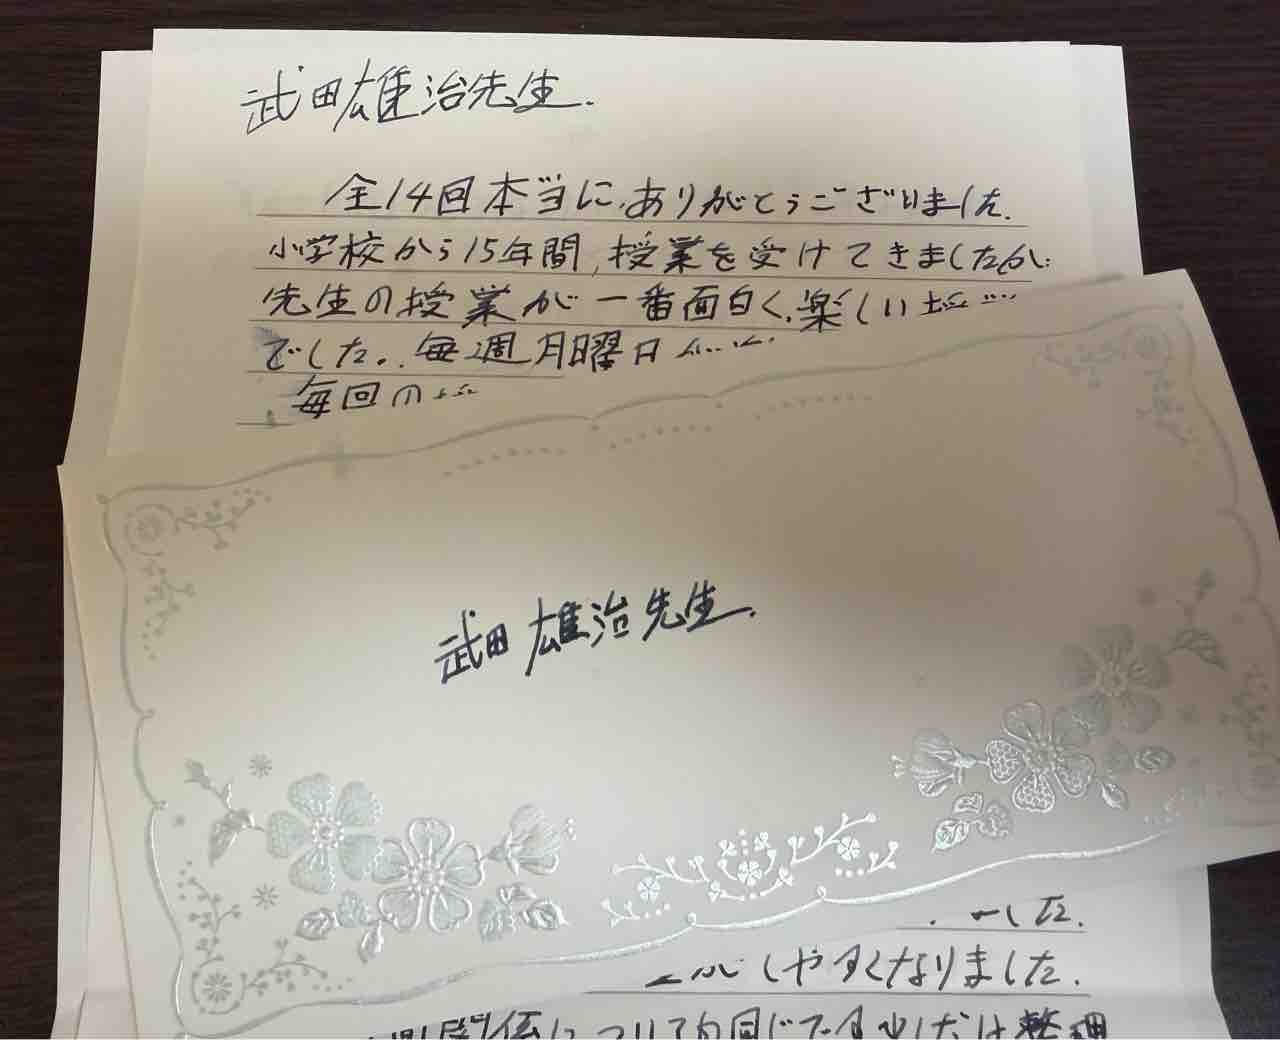 武田雄治先生.
全14回本当に、ありがとうございました.
小学校から15年間、授業を受けてきましたが
先生の授業が一番面白く、楽しい
でした。毎週月曜日
毎回の
武田雄治先生.
した.
しやすくなりました.
関係についても同じです